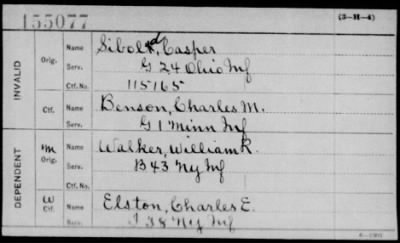 155077
(3-H-4)
INVALID
Orig.
Name Sibold, Casper
Serv. G 24 Ohio Inf
Ctf. No. 115165
Ctf.
Name Benson, Charles M.
Serv. G 1 Minn Inf
DEPENDENT
m
Orig.
Name Walker, William R.
Serv. B 43 Ny Inf
Ctf. No.
W
Ctf.
Name Elston, Charles E.
Serv. I 38 Ny Inf